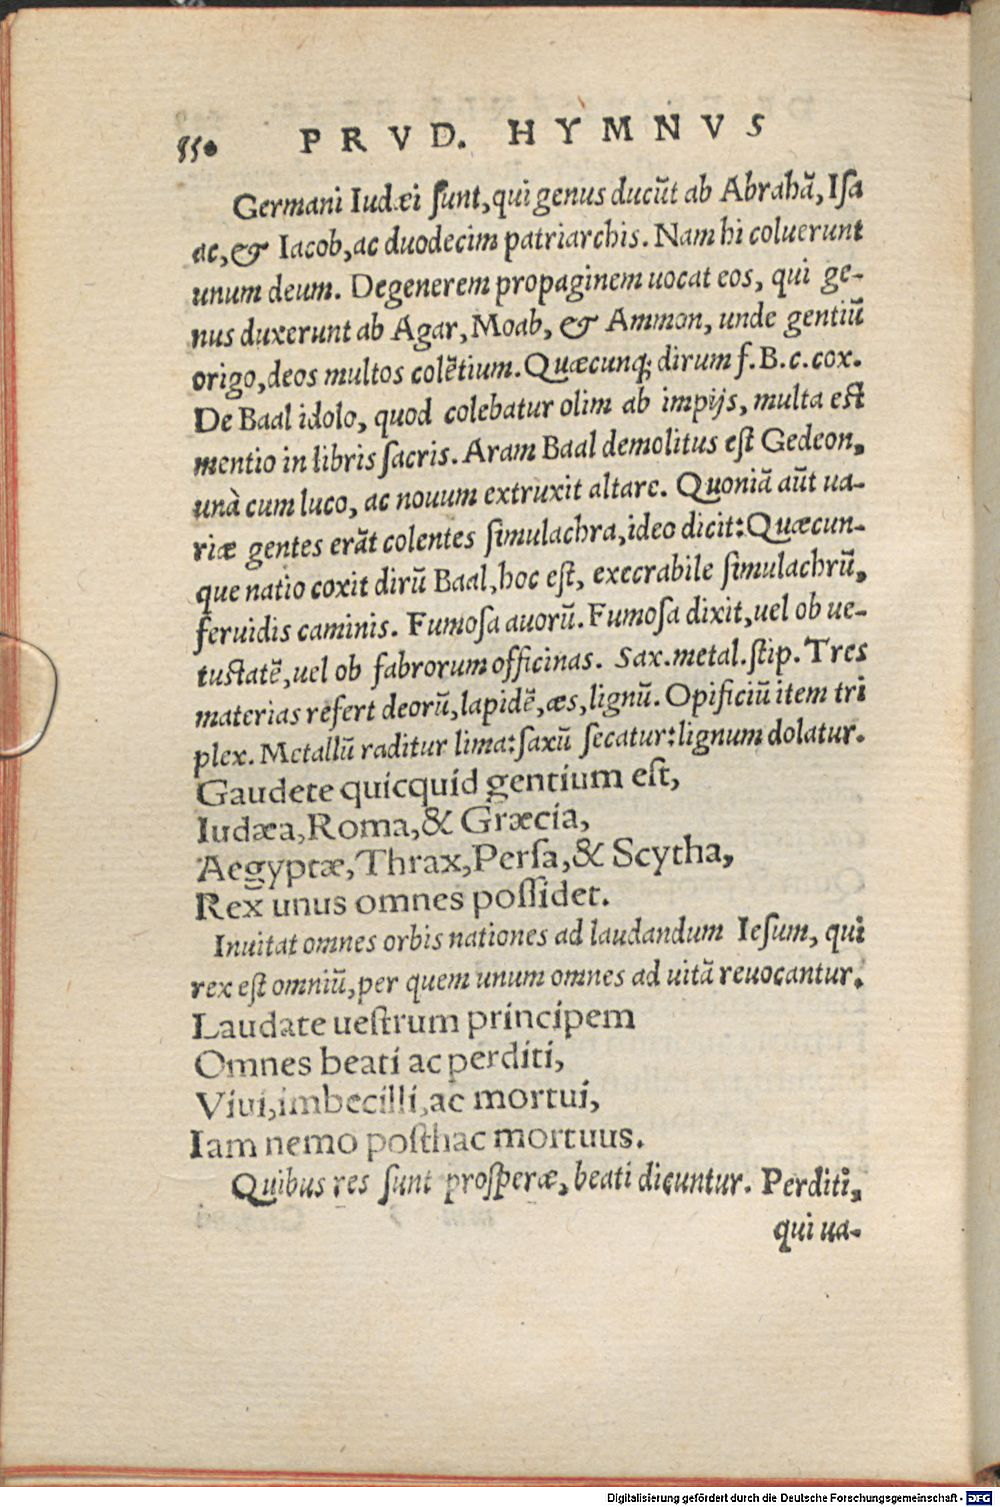 550 PRVD. HYMNVS
Germani Iudæi ſunt, qui genus ducūt ab Abrahā, Iſa
ac, & Iacob, ac duodecim patriarchis. Nam hi coluerunt
unum deum. Degenerem propaginem uocat eos, qui ge-
nus duxerunt ab Agar, Moab, & Ammon, unde gentiū
origo, deos multos colētium. Quæcunq; dirum f. B. c. cox.
De Baal idolo, quod colebatur olim ab impijs, multa eſt
mentio in libris ſacris. Aram Baal demolitus eſt Gedeon,
unà cum luco, ac nouum extruxit altare. Quoniā aūt ua-
riæ gentes erāt colentes ſimulachra, ideo dicit: Quæcun-
que natio coxit dirū Baal, hoc eſt, execrabile ſimulachrū,
feruidis caminis. Fumoſa auorū. Fumoſa dixit, uel ob ue-
tuſtatē, uel ob fabrorum officinas. Sax. metal. ſtip. Tres
materias refert deorū, lapidē, æs, lignū. Opificiū item tri
plex. Metallū raditur lima: ſaxū ſecatur: lignum dolatur.
Gaudete quicquid gentium eſt,
Iudæa, Roma, & Græcia,
Aegyptæ, Thrax, Perſa, & Scytha,
Rex unus omnes poſſidet.
Inuitat omnes orbis nationes ad laudandum Ieſum, qui
rex eſt omniū, per quem unum omnes ad uitā reuocantur.
Laudate ueſtrum principem
Omnes beati ac perditi,
Viui, imbecilli, ac mortui,
Iam nemo poſthac mortuus.
Quibus res ſunt proſperæ, beati dicuntur. Perditi,
qui ua-
Digitalisierung gefördert durch die Deutsche Forschungsgemeinschaft - DFG